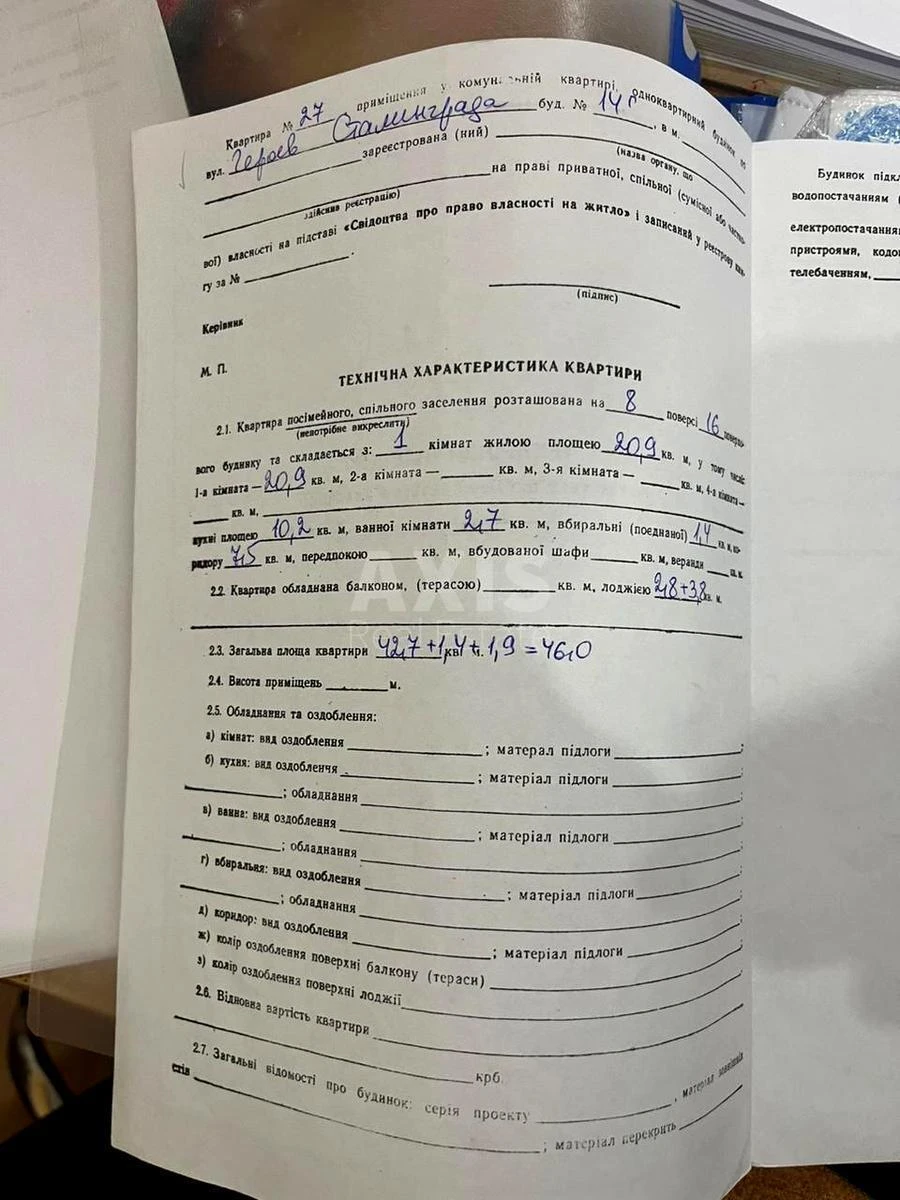 Квартира № 27 приміщення у комунальній квартирі, одноквартирний будинок по
вул. Героев Сталинграда буд. № 14, в м.
зареєстрована (ний)
(назва органу, що
на праві приватної, спільної (сумісної або частко-
здійснив реєстрацію)
вої) власності на підставі «Свідоцтва про право власності на житло» і записаний у реєстрову кни-
гу за №
(підпис)
Керівник
М. П.
ТЕХНІЧНА ХАРАКТЕРИСТИКА КВАРТИРИ
2.1. Квартира посімейного, спільного заселення розташована на 8 поверсі 16 поверхо-
(непотрібне викреслити)
вого будинку та складається з: 1 кімнат жилою площею 20,9 кв. м, у тому числі:
1-а кімната — 20,9 кв. м, 2-а кімната — кв. м, 3-я кімната — кв. м, 4-а кімната —
кв. м,
кухні площею 10,2 кв. м, ванної кімнати 2,7 кв. м, вбиральні (поєднаної) 1,4 кв. м, ко-
ридору 7,5 кв. м, передпокою кв. м, вбудованої шафи кв. м, веранди кв. м.
2.2. Квартира обладнана балконом, (терасою) кв. м, лоджією 2,8+3,8 кв. м.
AXIS
2.3. Загальна площа квартири 42,7+1,4+1,9=46,0 кв. м.
2.4. Висота приміщень м.
2.5. Обладнання та оздоблення:
а) кімнат: вид оздоблення ; матерал підлоги ;
б) кухня: вид оздобленчя ; матеріал підлоги
; обладнання ;
в) ванна: вид оздоблення ; матеріал підлоги
; обладнання ;
г) вбиральня: вид оздоблення ; матеріал підлоги ;
; обладнання ;
д) коридор: вид оздоблення ; матеріал підлоги ;
ж) колір оздоблення поверхні балкону (тераси)
з) колір оздоблення поверхні лоджії
2.6. Відновна вартість квартири
крб.
2.7. Загальні відомості про будинок: серія проекту , матеріал зовнішніх
стін ; матеріал перекрить
Будинок підкл
водопостачанням (
електропостачання
пристроями, кодо
телебаченням,